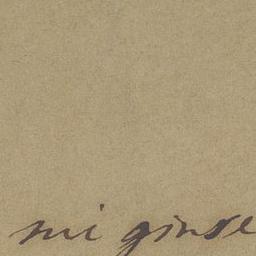 mi ginse